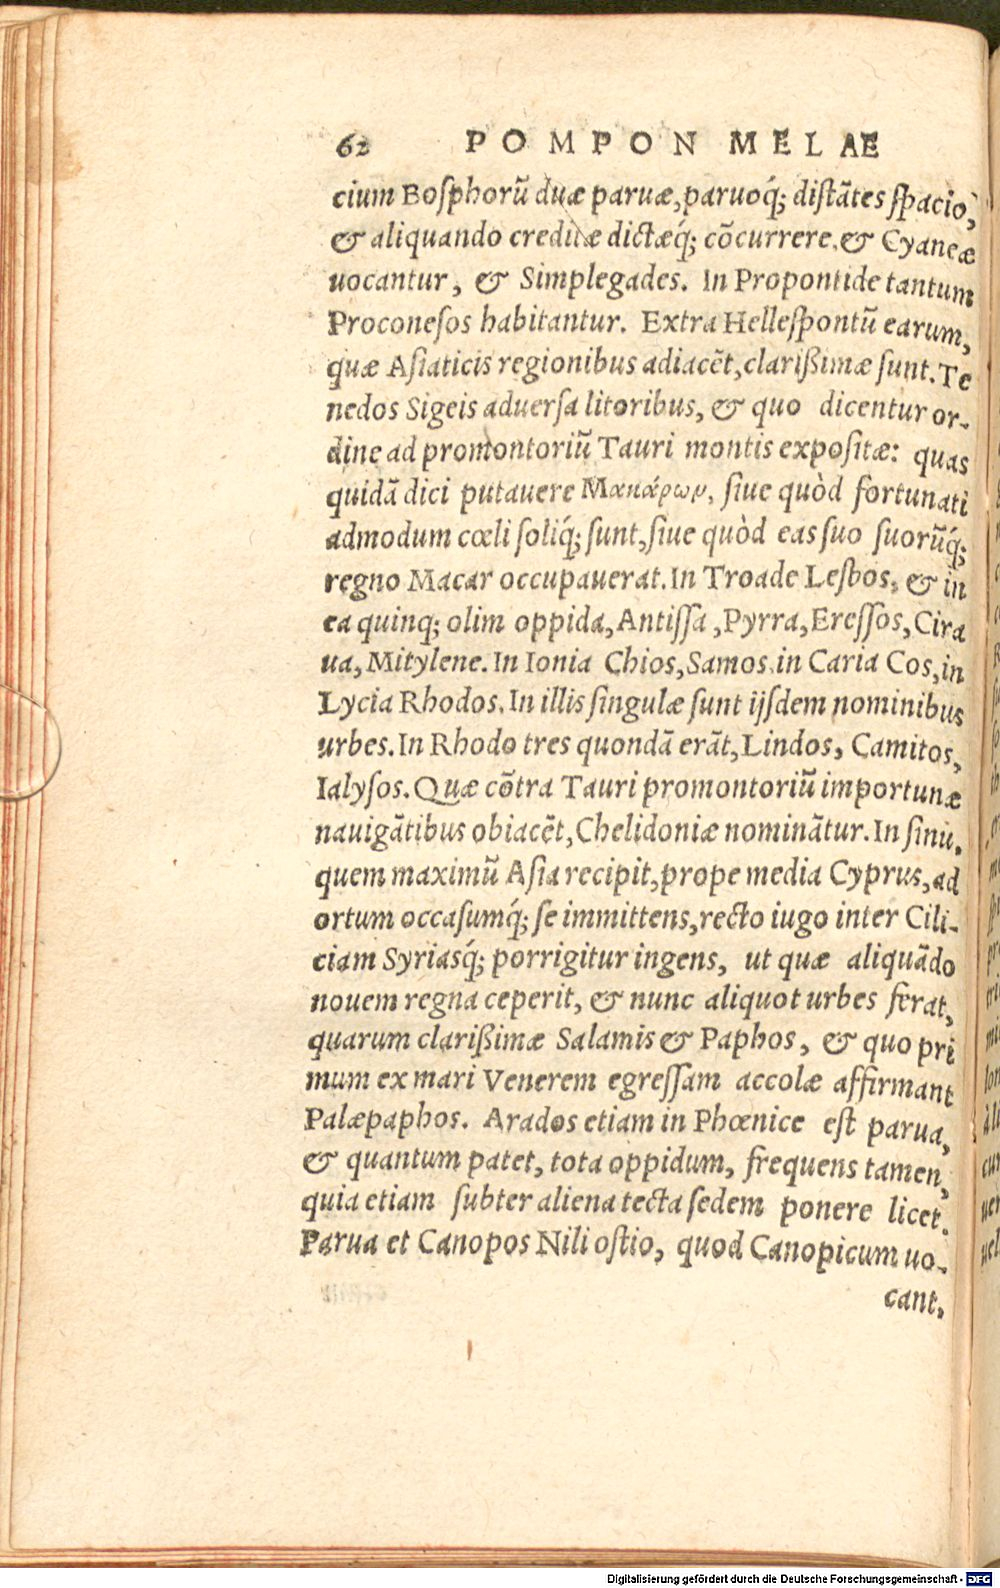 62 POMPON MELAE
cium Boſphorũ duæ paruæ, paruoq́; diſtãtes ſpacio,
& aliquando creditæ dictæq́; cõcurrere, & Cyaneæ
uocantur, & Simplegades. In Propontide tantum
Proconeſos habitantur. Extra Helleſpontũ earum,
quæ Aſiaticis regionibus adiacẽt, clarißimæ ſunt. Te
nedos Sigeis aduerſa litoribus, & quo dicentur or-
dine ad promontoriũ Tauri montis expoſitæ: quas
quidã dici putauere Μακάρων, ſiue quòd fortunati
admodum cœli ſoliq́; ſunt, ſiue quòd eas ſuo ſuorũq́;
regno Macar occupauerat. In Troade Lesbos, & in
ea quinq; olim oppida, Antiſſa, Pyrra, Ereſſos, Cira
ua, Mitylene. In Ionia Chios, Samos in Caria Cos, in
Lycia Rhodos. In illis ſingulæ ſunt ijſdem nominibus
urbes. In Rhodo tres quondã erãt, Lindos, Camitos,
Ialyſos. Quæ cõtra Tauri promontoriũ importunæ
nauigãtibus obiacẽt, Chelidoniæ nominãtur. In ſinu,
quem maximũ Aſia recipit, prope media Cyprus, ad
ortum occaſumq́; ſe immittens, recto iugo inter Cili-
ciam Syriasq́; porrigitur ingens, ut quæ aliquãdo
nouem regna ceperit, & nunc aliquot urbes ferat,
quarum clarißimæ Salamis & Paphos, & quo pri
mum ex mari Venerem egreſſam accolæ affirmant
Palæpaphos. Arados etiam in Phœnice eſt parua,
& quantum patet, tota oppidum, frequens tamen,
quia etiam ſubter aliena tecta ſedem ponere licet.
Parua et Canopos Nili oſtio, quod Canopicum uo-
cant,
Digitalisierung gefördert durch die Deutsche Forschungsgemeinschaft - DFG